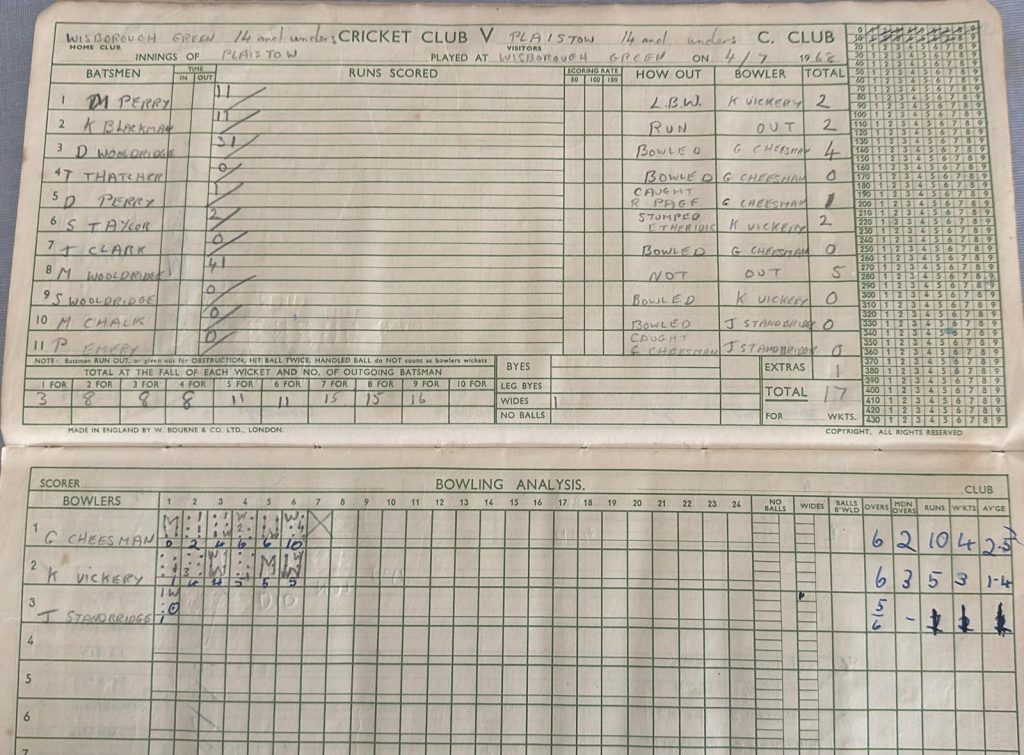 WISBOROUGH GREEN 14 and unders CRICKET CLUB V PLAISTOW 14 and unders C. CLUB
HOME CLUB VISITORS
INNINGS OF PLAISTOW PLAYED AT WISBOROUGH GREEN ON 4/7 1968
BATSMEN TIME IN OUT RUNS SCORED SCORING RATE 50 100 150 HOW OUT BOWLER TOTAL
1 M PERRY 11 L.B.W. K VICKERY 2
2 K BLACKMAN 11 RUN OUT 2
3 D WOOLDRIDGE 31 BOWLED G CHEESMAN 4
4 T THATCHER 0 BOWLED G CHEESMAN 0
5 D PERRY 1 CAUGHT R PAGE G CHEESMAN 1
6 S TAYLOR 2 STUMPED K VICKERY 2
7 J CLARK 0 BOWLED G CHEESMAN 0
8 M WOOLDRIDGE 41 NOT OUT 5
9 S WOOLDRIDGE 0 BOWLED K VICKERY 0
10 M CHALK 0 BOWLED J STANDBRIDGE 0
11 P EMERY 0 CAUGHT G CHEESMAN J STANDBRIDGE 0
NOTE: Batsmen RUN OUT, or given out for OBSTRUCTION, HIT BALL TWICE, HANDLED BALL do NOT count as bowlers wickets
TOTAL AT THE FALL OF EACH WICKET AND NO. OF OUTGOING BATSMAN
1 FOR 2 FOR 3 FOR 4 FOR 5 FOR 6 FOR 7 FOR 8 FOR 9 FOR 10 FOR
3 8 8 8 11 11 15 15 16
BYES
LEG BYES
WIDES 1
NO BALLS
EXTRAS 1
TOTAL 17
FOR WKTS.
MADE IN ENGLAND BY W. BOURNE & CO. LTD., LONDON.
COPYRIGHT. ALL RIGHTS RESERVED
SCORER BOWLING ANALYSIS. CLUB
BOWLERS 1 2 3 4 5 6 7 8 9 10 11 12 13 14 15 16 17 18 19 20 21 22 23 24 NO BALLS WIDES BALLS B'WLD OVERS MDN OVERS RUNS W'KTS AV'GE
1 G CHEESMAN 0 2 4 6 6 10 6 2 10 4 2.5
2 K VICKERY 1 4 4 5 5 5 6 3 5 3 1.4
3 J STANDBRIDGE 5/6 -
4
5
6
7